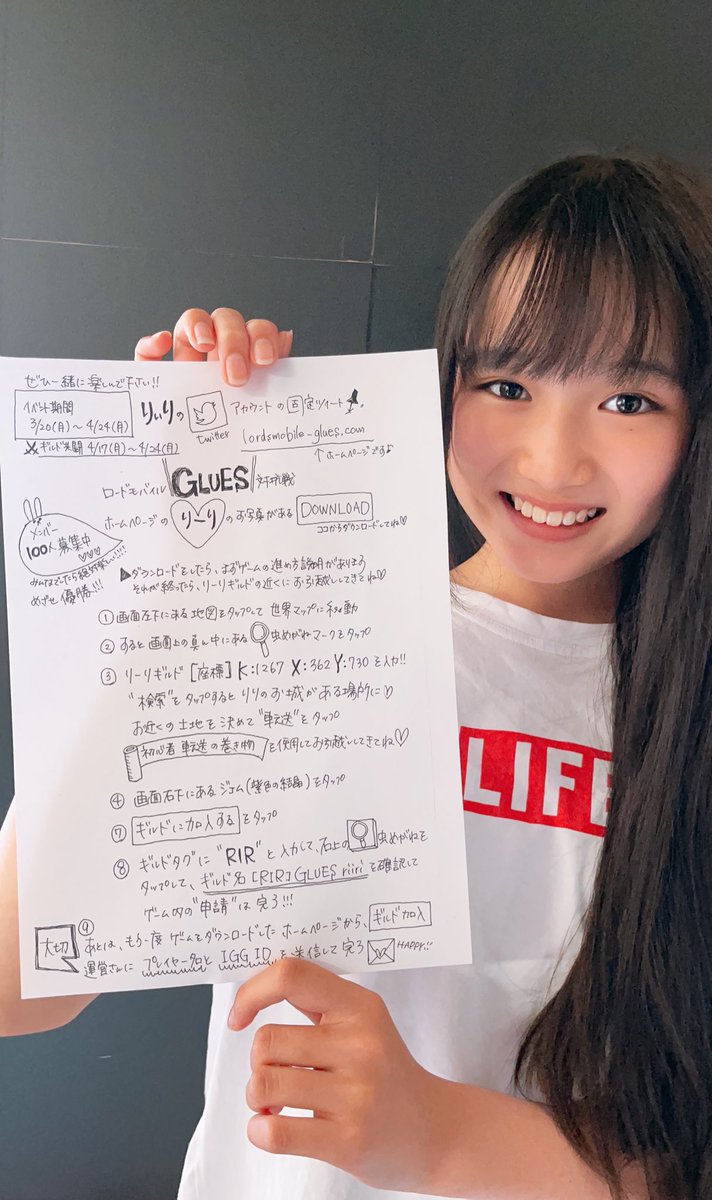 ぜひ一緒に楽しんで下さい!!
イベント期間
3/20(月)～4/24(月)
ギルド公開 4/17(月)～4/24(月)
りぃりの twitter アカウントの固定ツイート
lordsmobile-glues.com
↑ホームページですよ
ロードモバイル GLUES 対抗戦
ホームページの りーり のお写真がある DOWNLOAD
ココからダウンロードしてね♡
メンバー
100人募集中
♡♡♡
みんなでしたら絶対楽しい!!!
めざせ優勝!!!
▲ダウンロードをしたら、まずゲームの進め方説明があります
それが終ったら、りーりギルドの近くにお引越ししてきてね♡
① 画面左下にある地図をタップして世界マップに移動
② すると画面上の真ん中にある虫めがねマークをタップ
③ りーりギルド [座標] K:1267 X:362 Y:730 を入力!!
"検索"をタップするとりりのお城がある場所に♡
お近くの土地を決めて"転送"をタップ
初心者 転送の巻き物 を使用してお引越ししてきてね♡
④ 画面右下にあるジェム(紫色の結晶)をタップ
⑦ ギルドに加入する をタップ
⑧ ギルドタグに "RIR" と入力して、右上の 虫めがねを
タップして、ギルド名 [RIR] GLUES riiri を確認して
ゲーム内の"申請"は完了!!!
大切
⑨ あとは、もう一度ゲームをダウンロードしたホームページから、ギルド加入
運営さんに プレイヤー名と IGG ID を送信して完了 HAPPY!!
LIFE